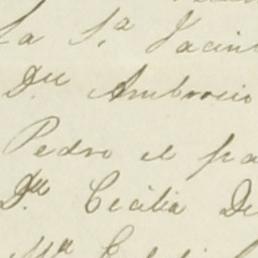 La S.ª Jacin
D.ª Ambrosio
Pedro el pa
D.ª Cecilia De
Mª